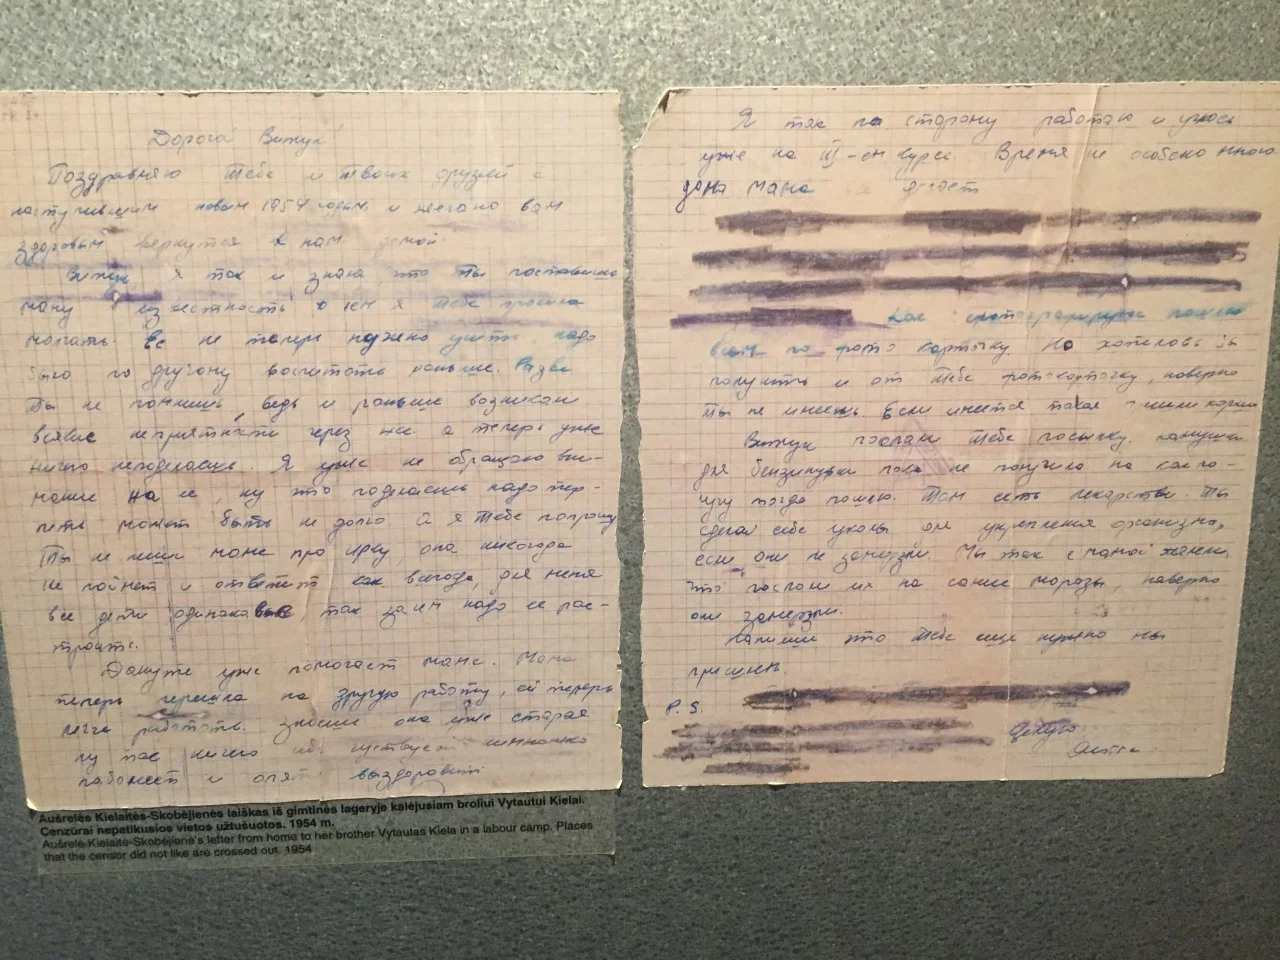 Дорогой Витук!
Поздравляю Тебя и Твоих друзей с
наступившим новым 1954 годом и желаю вам
здоровым вернутся к нам домой.
Витук я так и знала, что Ты поставишь
маму в известность о чем я Тебе просила
молчать. Ее не теперь нужно учить, надо
было по другому воспитать раньше. Разве
Ты не помнишь, ведь и раньше возникали
всякие неприятности через нее а теперь уже
ничего неподелаешь. Я уже не обращаю вни-
мание на ее, ну что поделаешь надо тер-
петь может быть не долго. А я Тебе попрошу
Ты не пиши маме про Ирку, она никогда
не поймет и ответит как всегда, для меня
все дети одинаковые, так зачем надо ее рас-
троить.
Дануте уже помогает маме. Мама
теперь перешла на другую работу, ей теперь
легче работать. знаеш она уже старая
ну так ничего чувствует немножко
поболеет и опять выздоровит
Я так по старому работаю и учюсь
уже на III-ем курсе. Время не особено много.
дома мама
Как сфотографируюсь пошлю
вам по фото карточку. Но хотелось бы
получить и от Тебе фотокарточку, наверно
Ты не имееш, если имется такая
Витук послали Тебе посылку. камушки
для бензинувки пока не получила но как по-
лучу тогда пошлю. Там есть лекарства. Ты
сделай себе уколы для укрепления организма,
если они не замерзли. Мы так с мамой жалели
что послали их на самые морозы, наверно
они замерзли.
Напиши что Тебе еще нужно мы
пришлем.
P. S.
Целую
Aušrelės Kielaitės-Skobėjienės laiškas iš gimtinės lageryje kalėjusiam broliui Vytautui Kielai.
Cenzūrai nepatikusios vietos užtušuotos. 1954 m.
Aušrelė Kielaitė-Skobėjienė's letter from home to her brother Vytautas Kiela in a labour camp. Places
that the censor did not like are crossed out. 1954